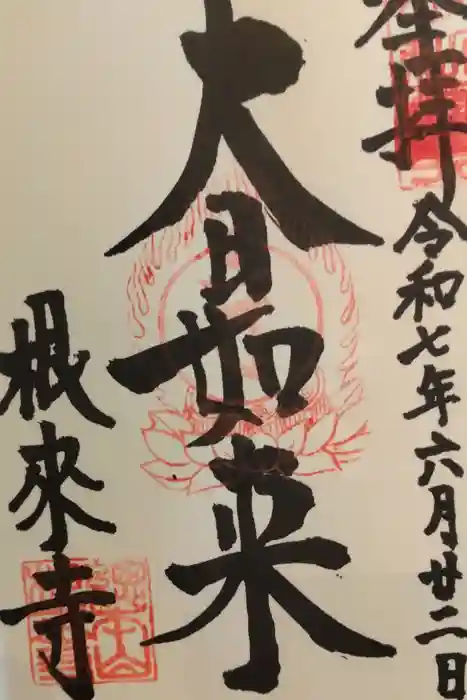 奉拝
令和七年六月廿二日
大日如来
根來寺